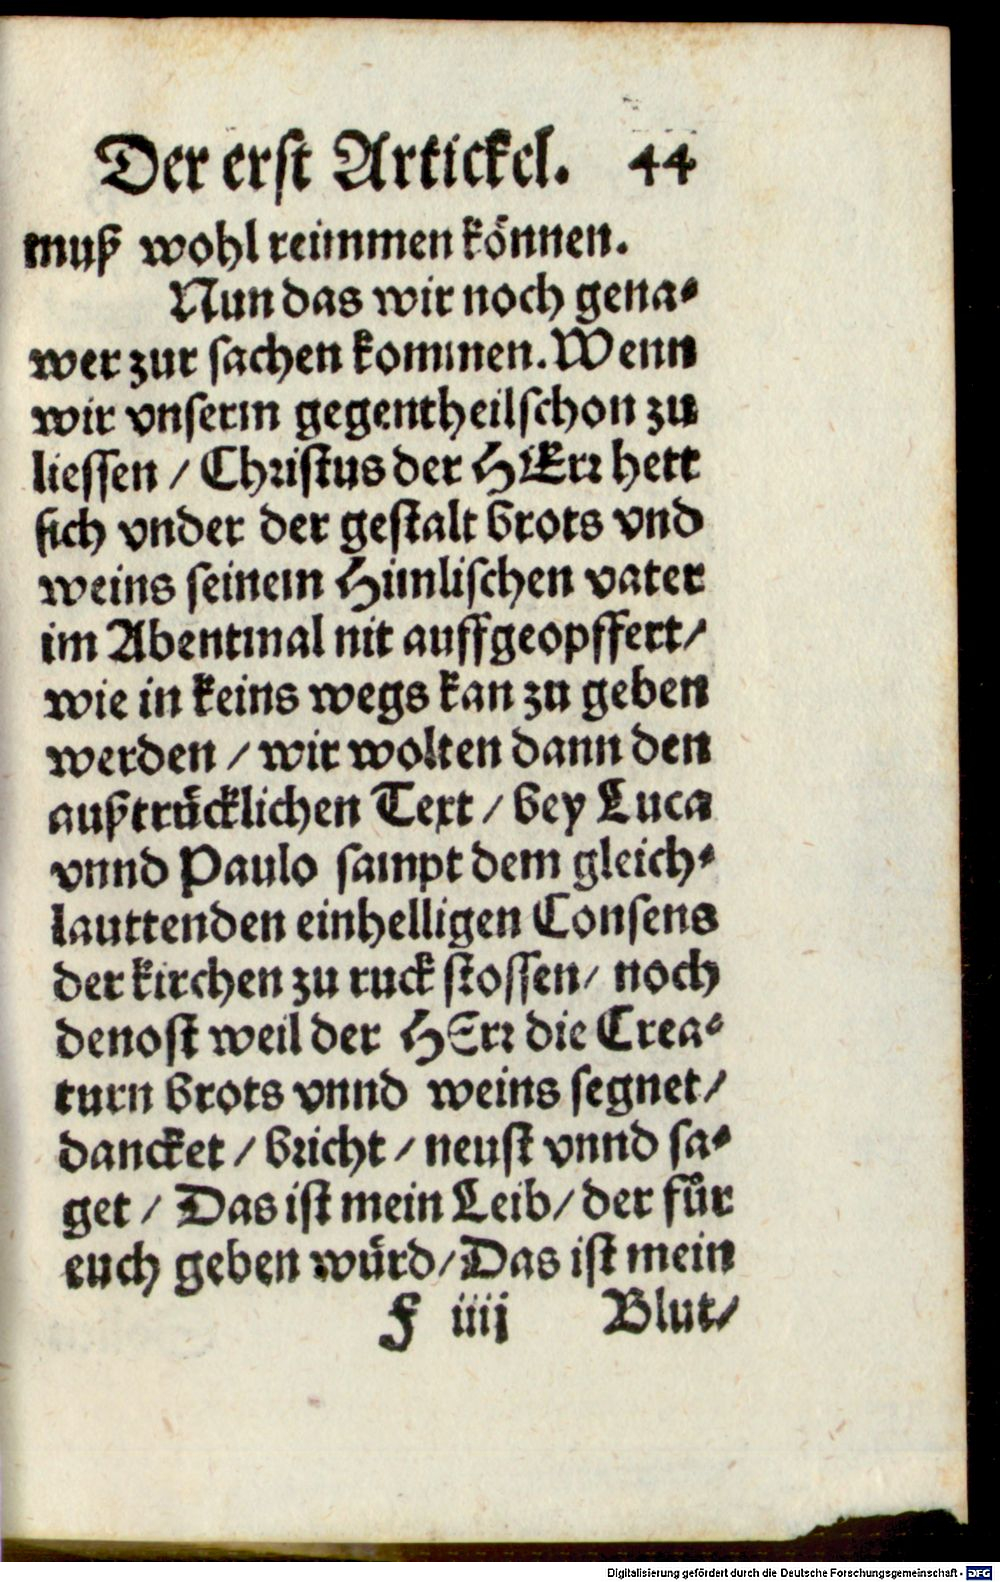 Der erst Artickel. 44
muß wohl reimmen können.
Nun das wir noch gena⸗
wer zur sachen kommen. Wenn
wir vnserm gegentheil schon zu
liessen / Christus der HErr hett
sich vnder der gestalt brots vnd
weins seinem Himlischen vater
im Abentmal nit auffgeopffert /
wie in keins wegs kan zu geben
werden / wir wolten dann den
außtrücklichen Text / bey Luca
vnnd Paulo sampt dem gleich⸗
lauttenden einhelligen Consens
der kirchen zu ruck stossen / noch
denost weil der HErr die Crea⸗
turn brots vnnd weins segnet /
dancket / bricht / neust vnnd sa⸗
get / Das ist mein Leib / der für
euch geben würd / Das ist mein
F iiij Blut /
Digitalisierung gefördert durch die Deutsche Forschungsgemeinschaft - DFG